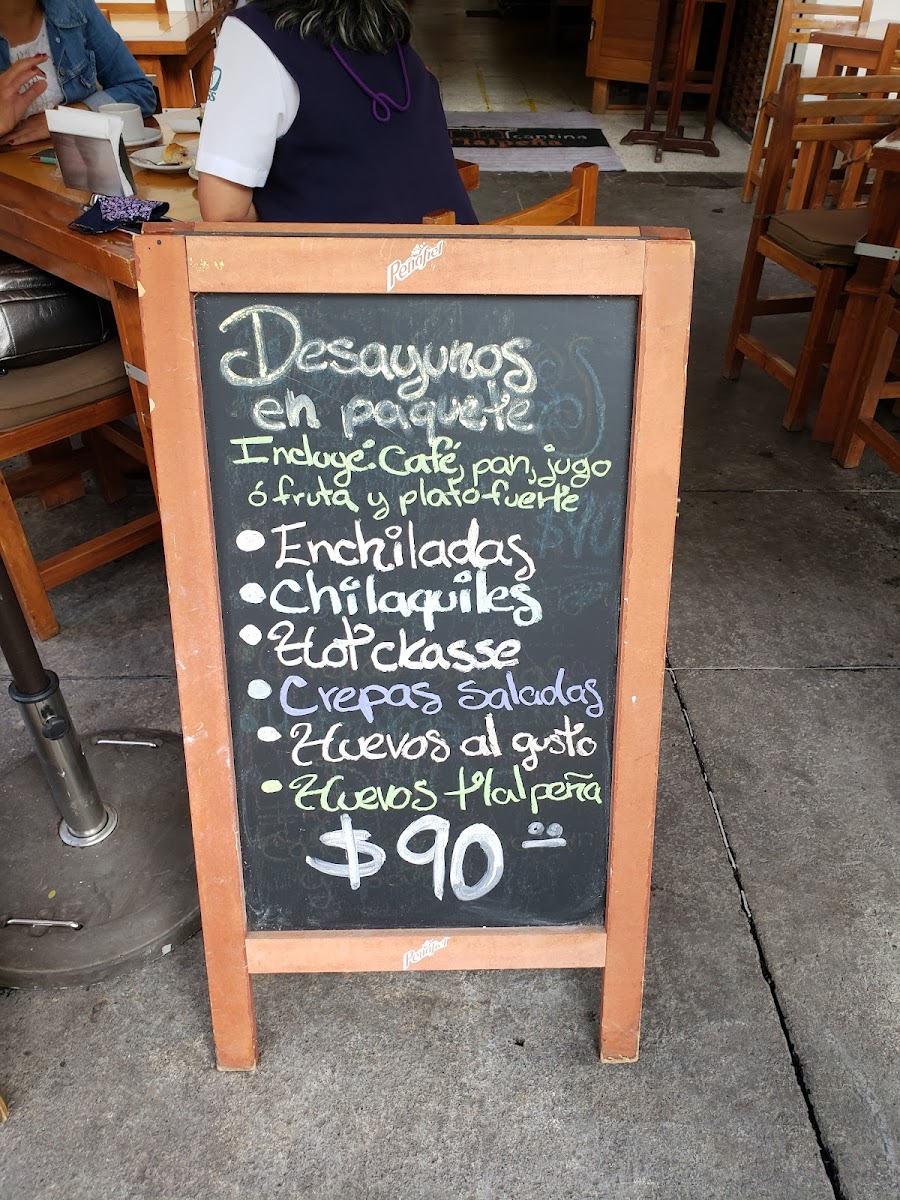 cantina
Tlalpeña
Peñafiel
Desayunos
en paquete
Incluye: Café, pan, jugo
ó fruta y plato fuerte
• Enchiladas
• Chilaquiles
• Hot ckasse
• Crepas saladas
• Huevos al gusto
• Huevos tlalpeña
$90.00
Peñafiel